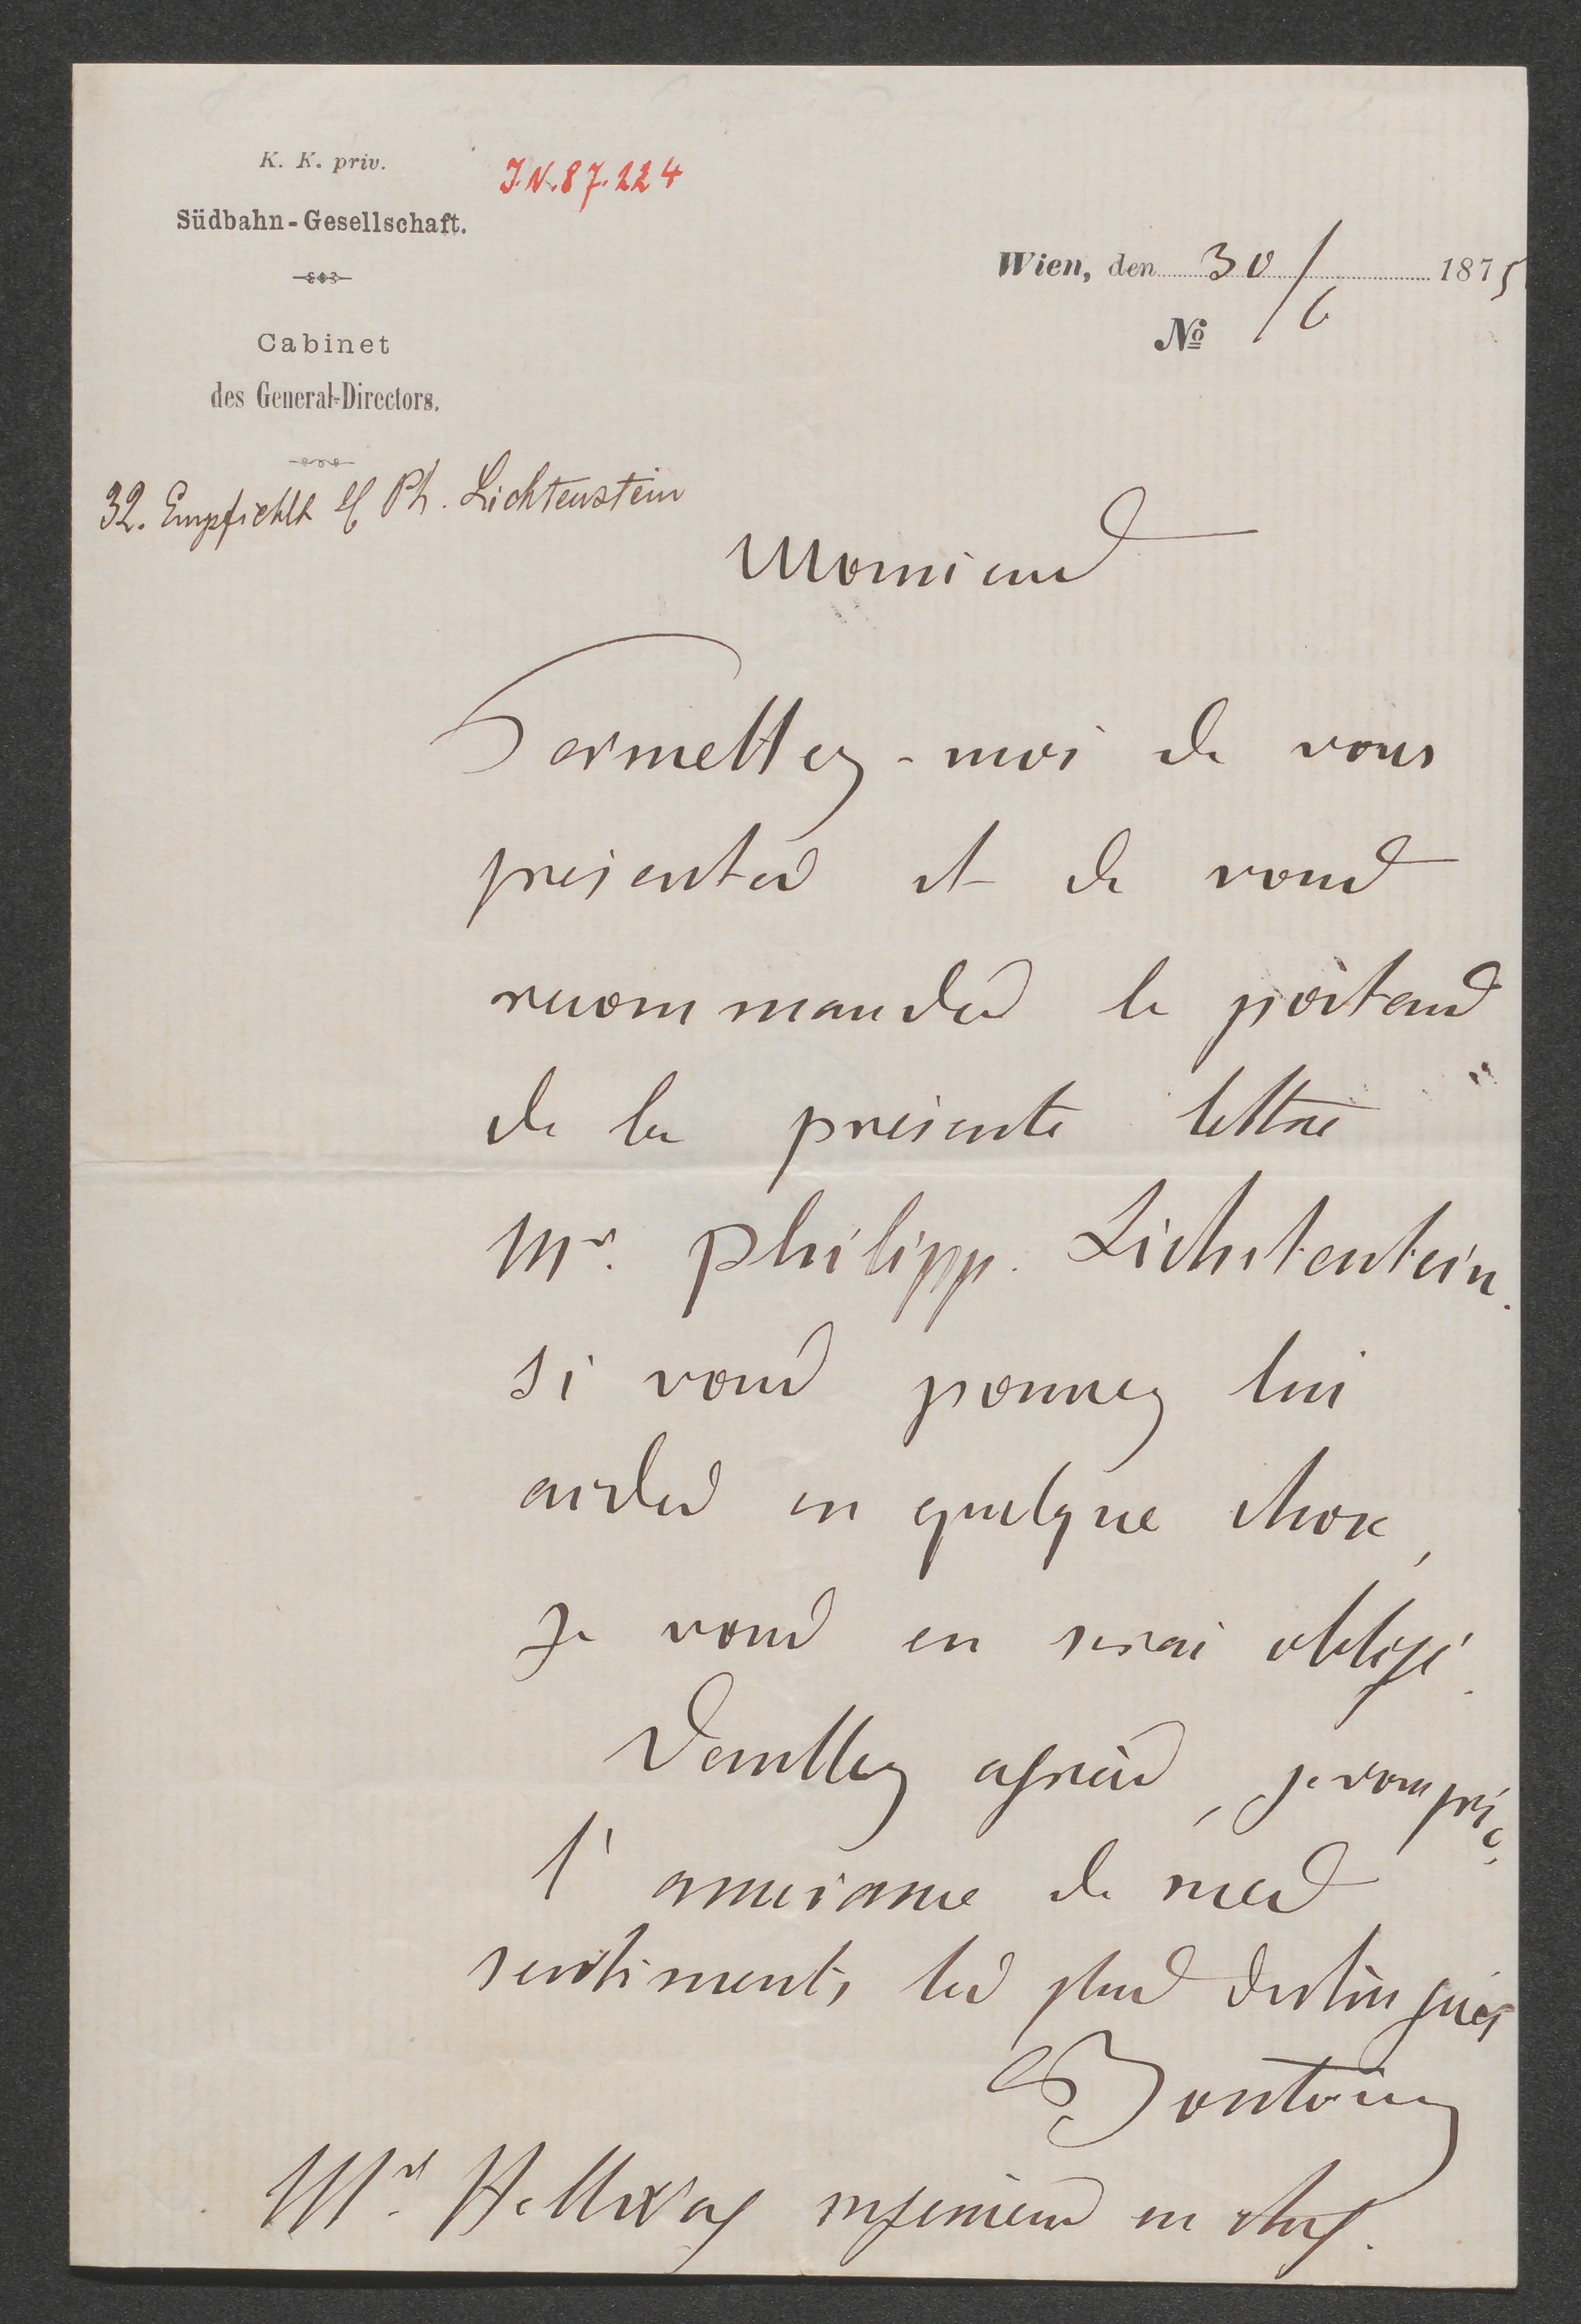 K. K. priv.
Südbahn-Gesellschaft.
Cabinet
des General-Directors.
J.N.87.224
Wien, den 30/6 1875
№
32. Empfiehlt Ph. Lichtenstein
Monsieur
Permettez-moi de vous
présenter et de vous
recommander le porteur
de la présente lettre
Mr. Philipp. Lichtentein.
Si vous pouvez lui
aider en quelque chose,
je vous en serai obligé.
Veuillez agréer, je vous prie,
l'assurance de mes
sentiments les plus distingués
Bontoux
Mr. Hellwag ingenieur en chef.